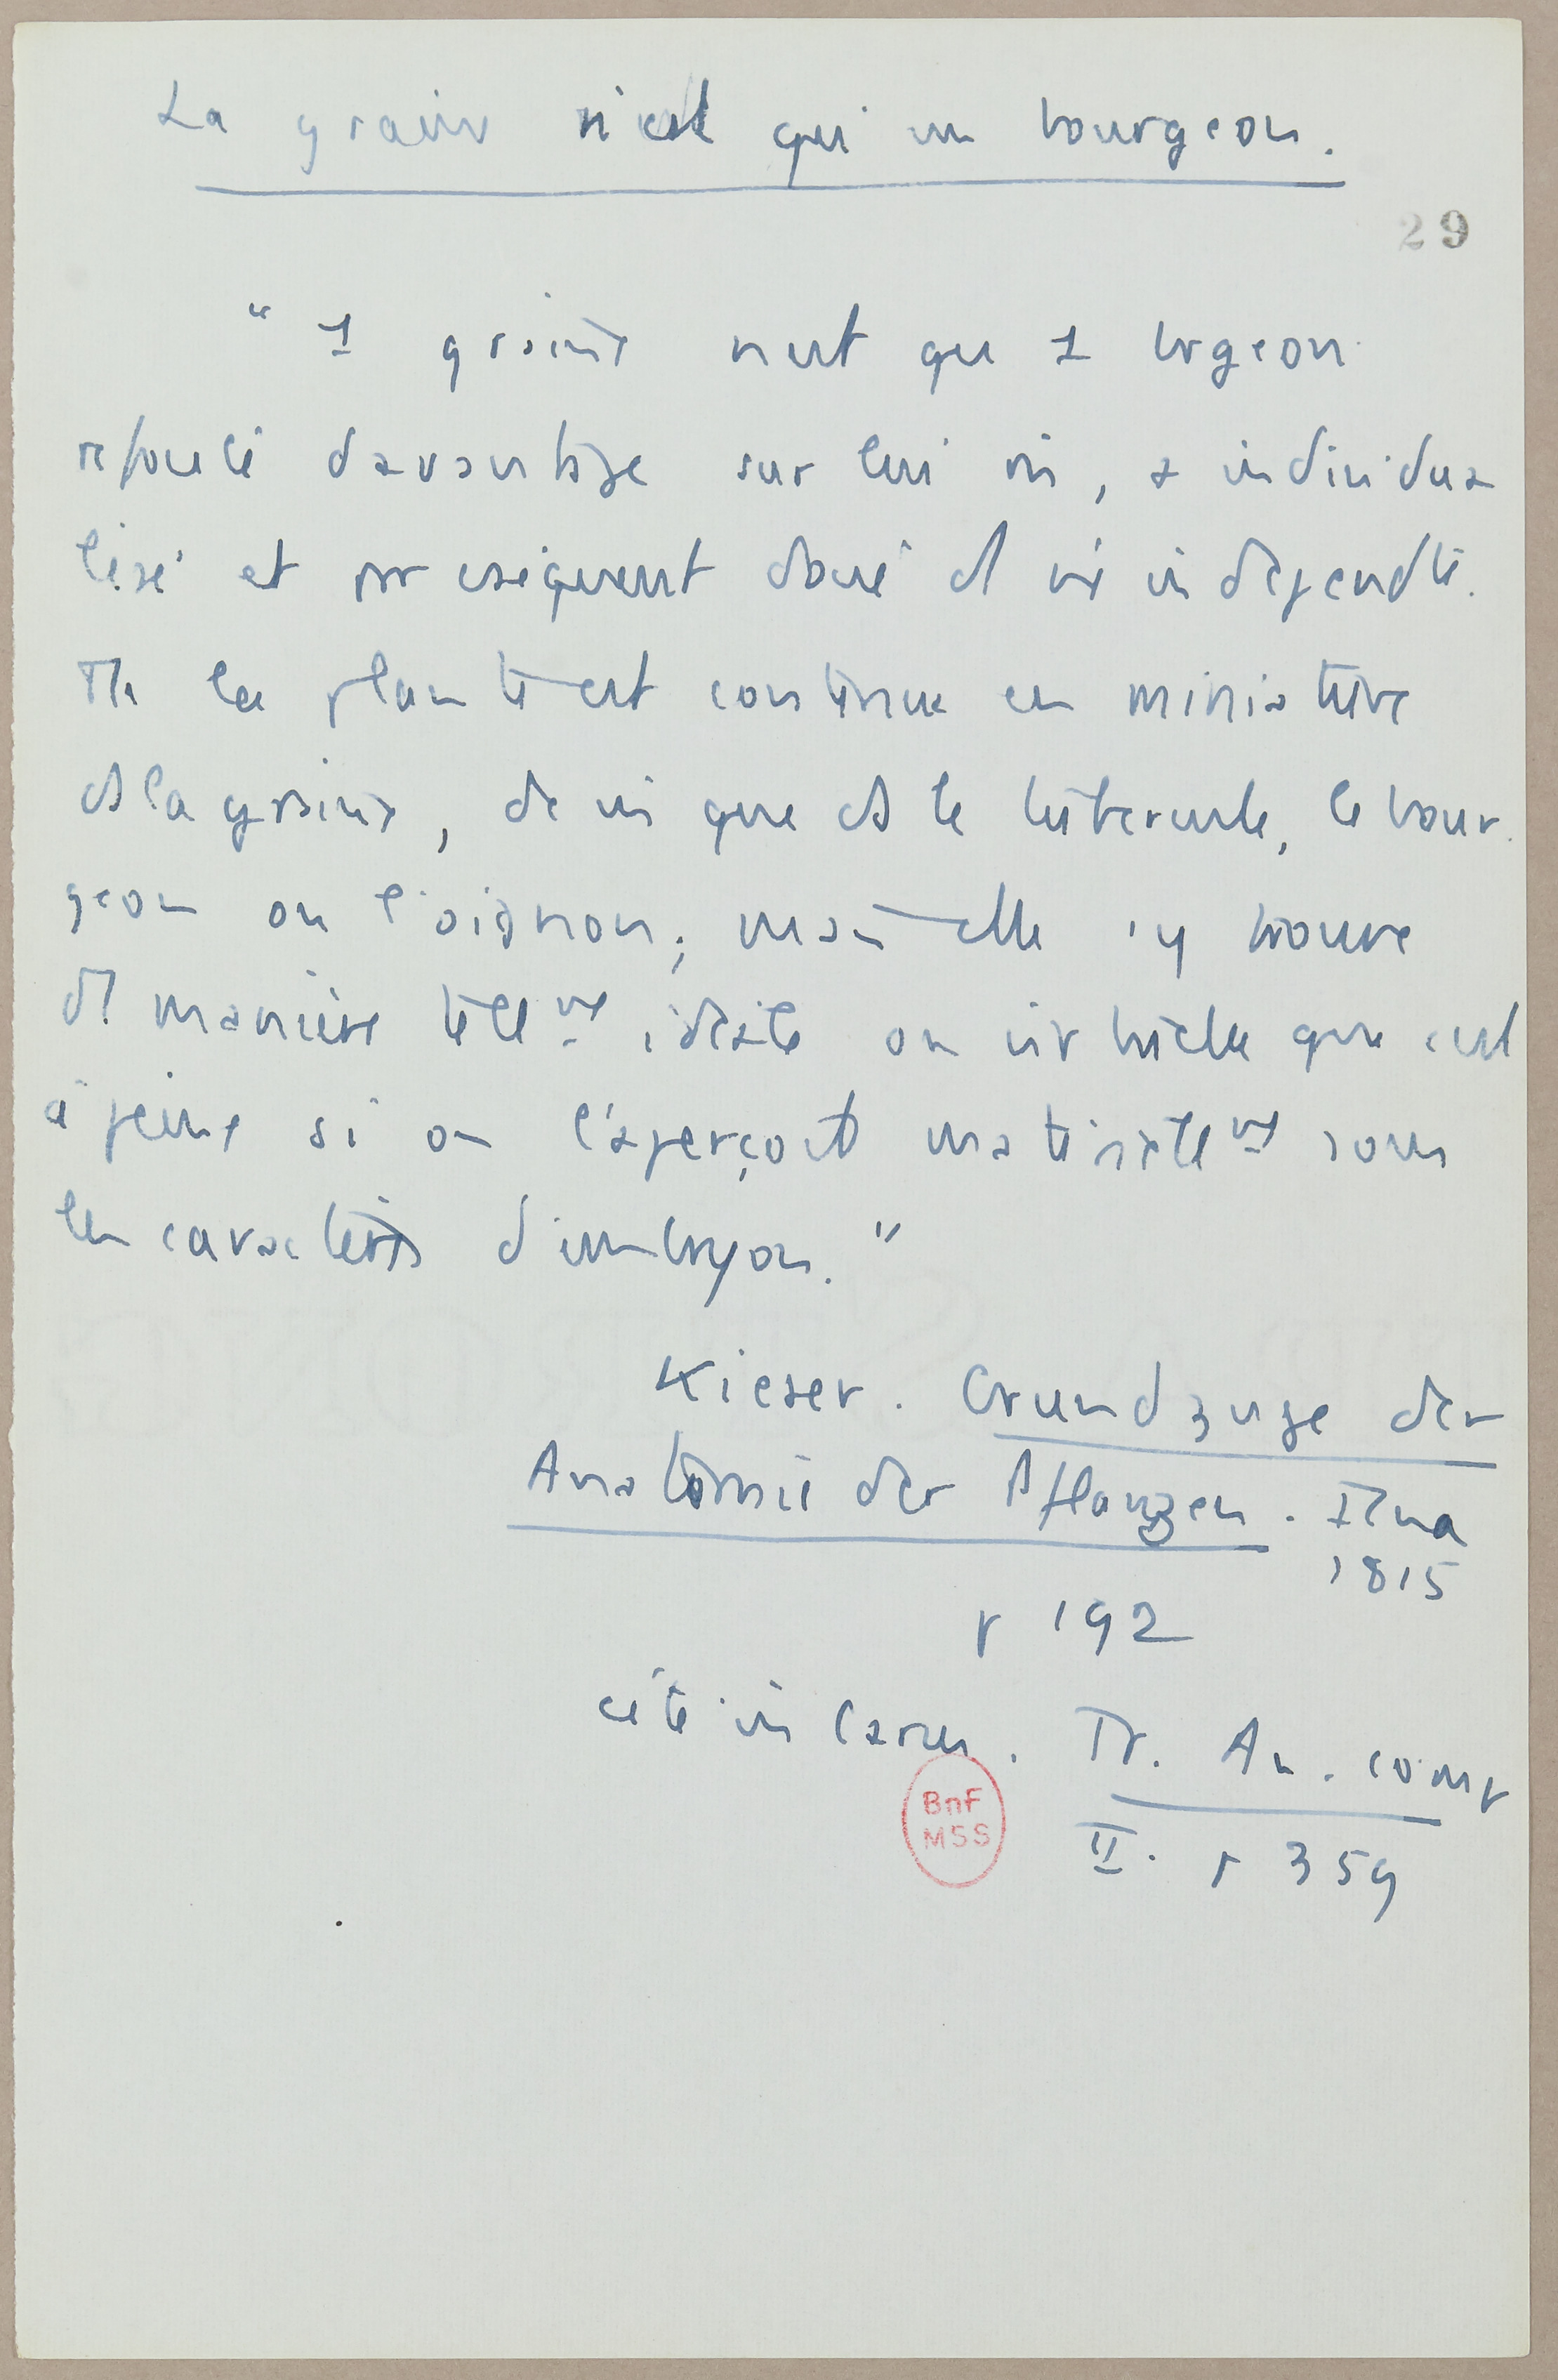 La graine n'est qu'un bourgeon.
29
" 1 graine n'est que 1 brgeon
refoulé davantage sur lui mm, + individua
lisé et par cséquent doué d' vie indépendte.
Tte la plante est contenue en miniature
ds la graine, de mm que ds le tubercule, le bour
geon ou l'oignon; mais elle s'y trouve
d' manière tellmt idéale ou virtuelle que c'est
à peine si on l'aperçoit matériellemt sous
les caractères d'embryon. "
Kieser. Grundzuge der
Anatomie der Pflanzen. Iéna
1815
p 192
cité in Carus. Tr. An. comp
II. p 359
BnF
MSS